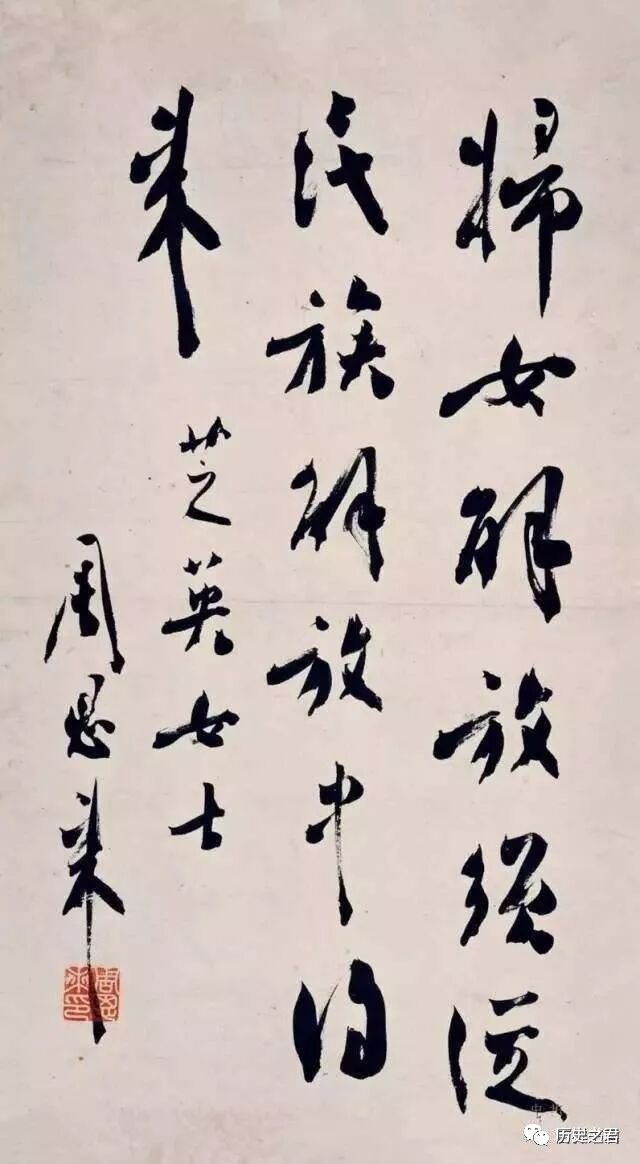 婦女解放須從
民族解放中得
來
芝英女士
周恩來
周恩來印
历史之君